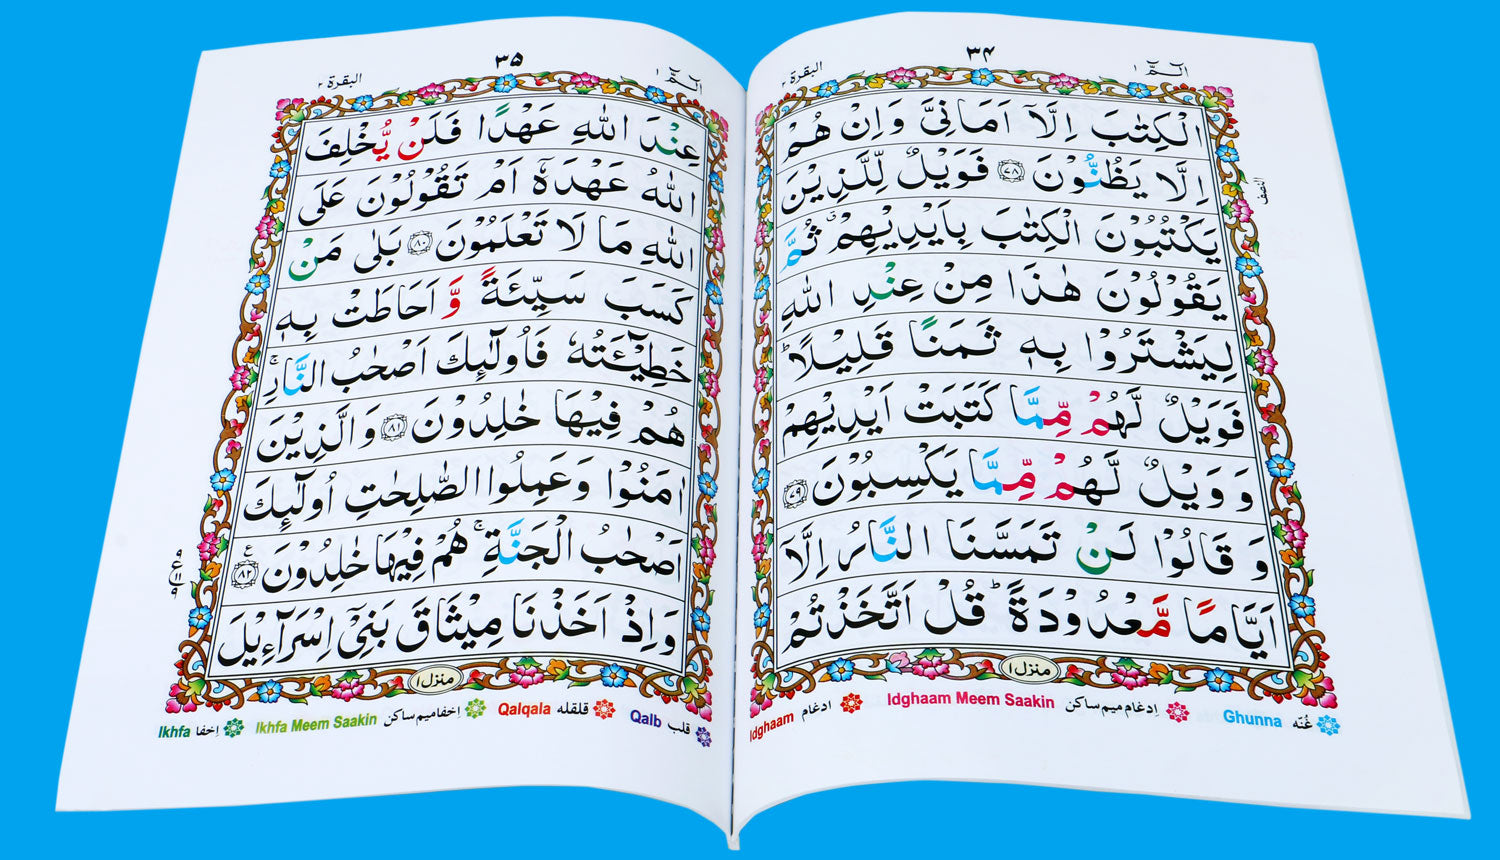 الٓمّٓ ١ ٣٤ البقرة ٢
الْكِتٰبَ اِلَّاۤ اَمَانِیَّ وَاِنْ هُمْ
اِلَّا یَظُنُّوْنَ ۝٧٨ فَوَیْلٌ لِّلَّذِیْنَ
یَكْتُبُوْنَ الْكِتٰبَ بِاَیْدِیْهِمْ ۗ ثُمَّ
یَقُوْلُوْنَ هٰذَا مِنْ عِنْدِ اللّٰهِ
لِیَشْتَرُوْا بِهٖ ثَمَنًا قَلِیْلًا ؕ
فَوَیْلٌ لَّهُمْ مِّمَّا كَتَبَتْ اَیْدِیْهِمْ
وَ وَیْلٌ لَّهُمْ مِّمَّا یَكْسِبُوْنَ ۝٧٩
وَ قَالُوْا لَنْ تَمَسَّنَا النَّارُ اِلَّاۤ
اَیَّامًا مَّعْدُوْدَةً ؕ قُلْ اَتَّخَذْتُمْ
النصف
منزل ١
غُنّه Ghunna
اِدغام میم ساکن Idghaam Meem Saakin
ادغام Idghaam
الٓمّٓ ١ ٣٥ البقرة ٢
عِنْدَ اللّٰهِ عَهْدًا فَلَنْ یُّخْلِفَ
اللّٰهُ عَهْدَهٗۤ اَمْ تَقُوْلُوْنَ عَلَی
اللّٰهِ مَا لَا تَعْلَمُوْنَ ۝٨٠ بَلٰی مَنْ
كَسَبَ سَیِّئَةً وَّ اَحَاطَتْ بِهٖ
خَطِیْٓـَٔتُهٗ فَاُولٰٓئِكَ اَصْحٰبُ النَّارِ ۚ
هُمْ فِیْهَا خٰلِدُوْنَ ۝٨١ وَالَّذِیْنَ
اٰمَنُوْا وَعَمِلُوا الصّٰلِحٰتِ اُولٰٓئِكَ
اَصْحٰبُ الْجَنَّةِ ۚ هُمْ فِیْهَا خٰلِدُوْنَ ۝٨٢ ع
وَاِذْ اَخَذْنَا مِیْثَاقَ بَنِیْۤ اِسْرَآءِیْلَ
٩
ع
١١
٩
منزل ١
قلب Qalb
قلقله Qalqala
اِخفا میم ساکن Ikhfa Meem Saakin
اِخفا Ikhfa